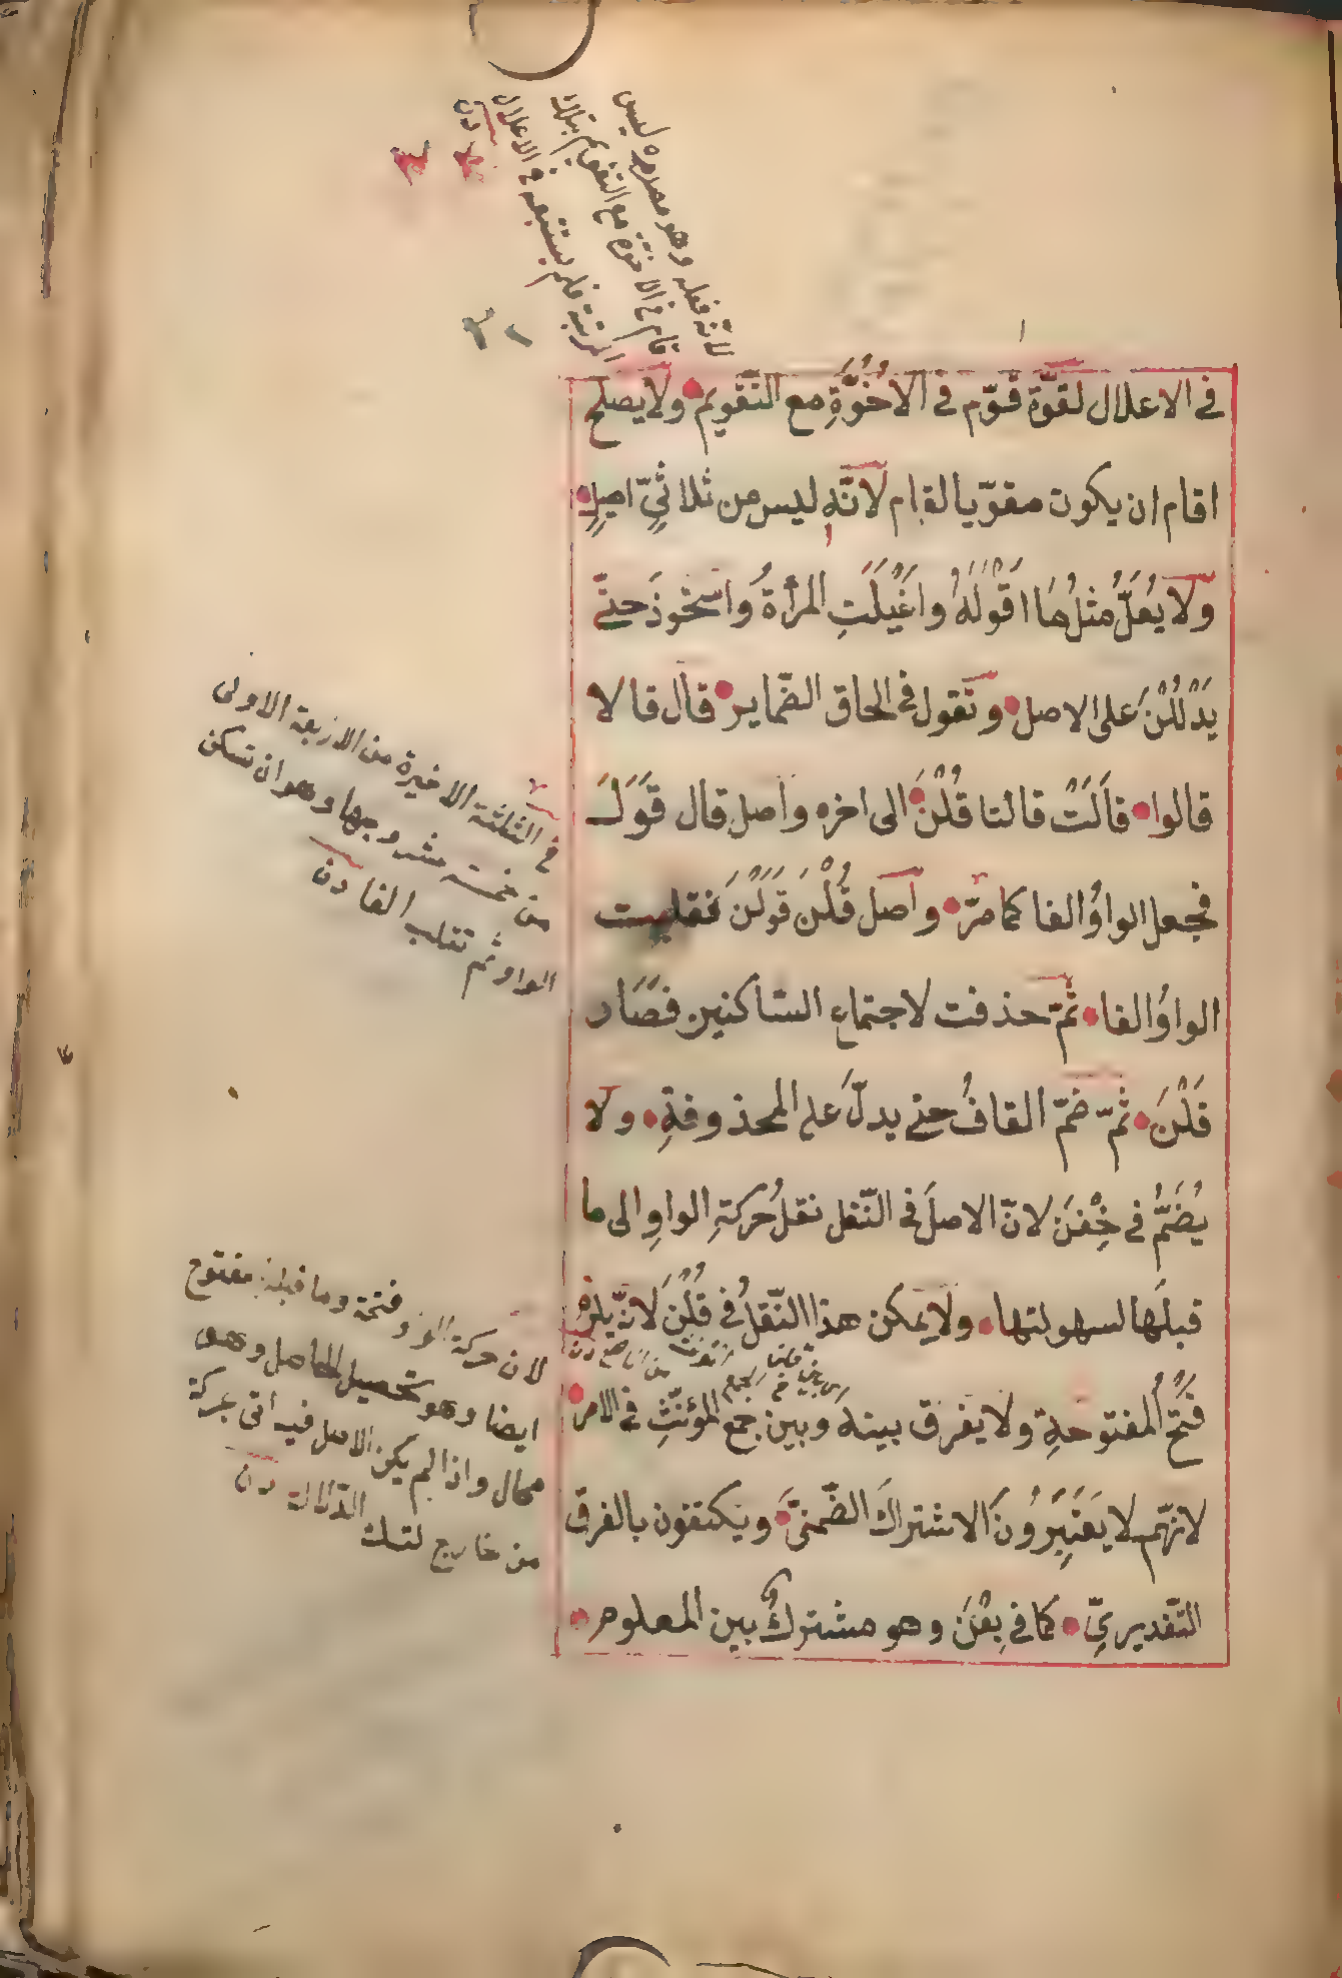 لانه فعله وهو مصدره ليس
قام في الاخوة مع التقويم بتلك
المرتبة فلم يستتبعه في الاعلال
دن
٣١
في الاعلال لقوّة قوّم في الاُخُوَّةِ مع التّقويم ولا يصلح
اقام ان يكون مقوّيا لقيام لانَّه ليس من ثلاثيٍّ اصيلٍ
ولا يُعَلُّ مثلُ مَا اَقْوَلَهُ واَغْيَلَتِ المرأةُ واسْتَحْوَذَ حتّى
يَدْلُلْنَ على الاصل وتقول في الحاق الضّماير قال قالا
قالوا قالَتْ قالتا قُلْنَ الى اخره واصل قال قَوَلَ
فجعل الواوُ الفا كما مرّ واصل قُلْنَ قَوَلْنَ فقلبت
الواوُ الفا ثمّ حذفت لاجتماع السّاكنين فصَار
قَلْنَ ثمّ ضمّ القافُ حتى يدلّ على المحذوفةِ ولا
يُضَمُّ في خِفْنَ لانّ الاصلَ في النّقل نقلُ حركةِ الواوِ الى ما
قبلَها لسهولتها ولا يمكن هذا النّقلُ في قُلْنَ لانّه يلزم
فَتْحُ المفتوحةِ ولا يفرق بينه وبين جمع المؤنّثِ في الامر
لانّهم لا يَعْتَبِرُونَ الاشتراكَ الضّمنيَّ ويكتفون بالفرق
التّقديريّ كما في بِعْنَ وهو مشتركٌ بين المعلوم
في الثلثة الاخيرة من الاربعة الاولى
من خمسة عشر وجها وهو ان تسكن
الواو ثم تقلب الفا دن
لان حركة الواو فتحة وما قبلها مفتوح
ايضا وهو تحصيل الحاصل وهو
محال واذا لم يكن الاصل فيه اتى بحركة
من خارج لتلك الدّلالة دن